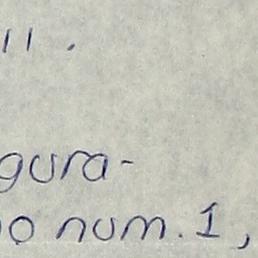 11.
gura-
o num. 1,